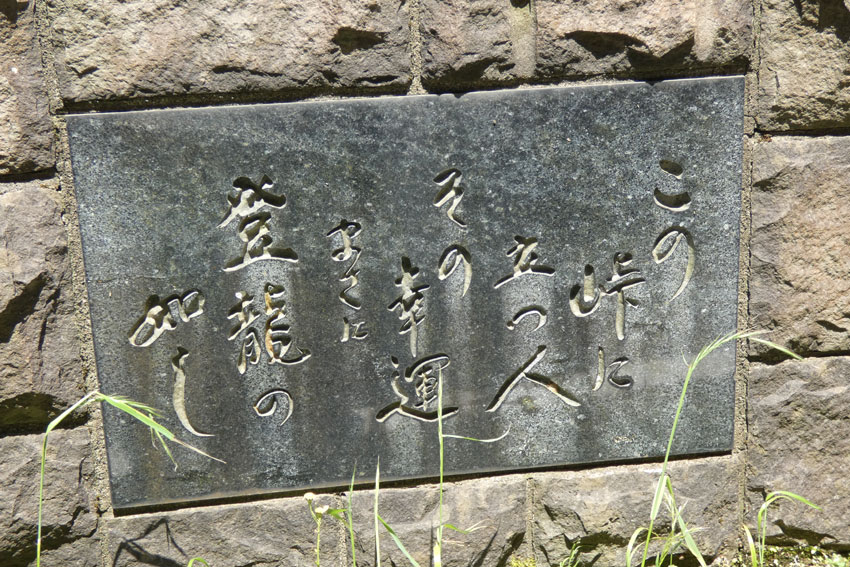 この
峠に
立つ人
その
幸運
まさに
登龍の
如し